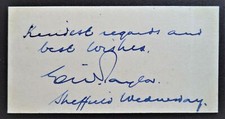 Kindest regards and
best wishes.
Eric Taylor
Sheffield Wednesday.